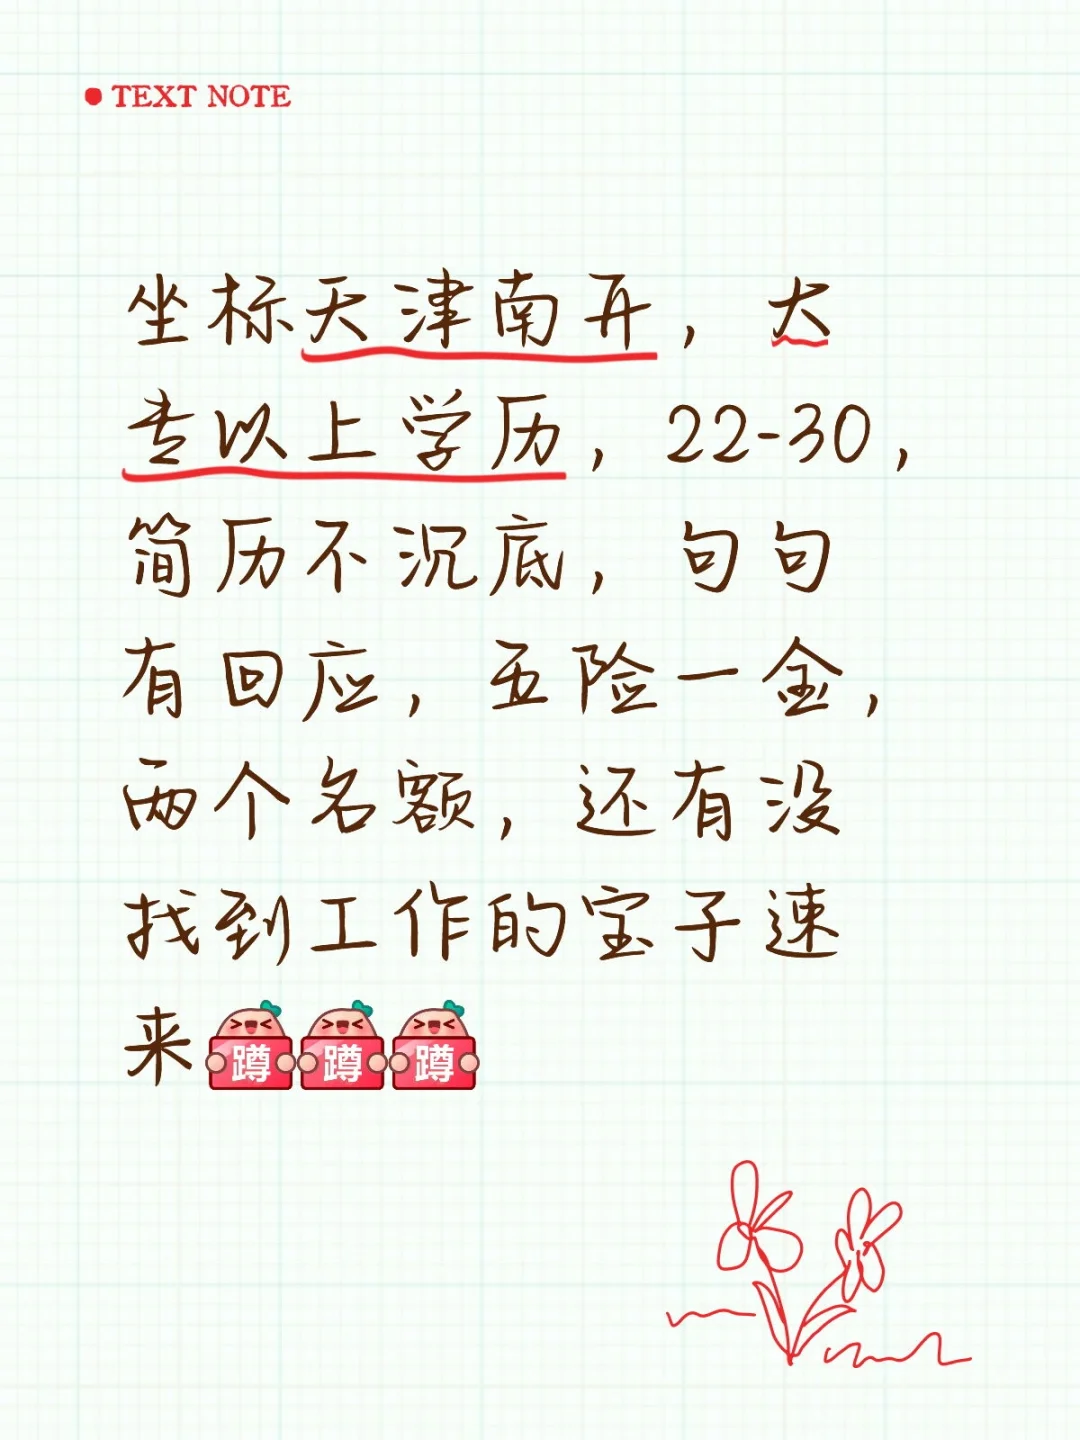 TEXT NOTE
坐标天津南开，大
专以上学历，22-30，
简历不沉底，句句
有回应，五险一金，
两个名额，还有没
找到工作的宝子速
来蹲蹲蹲